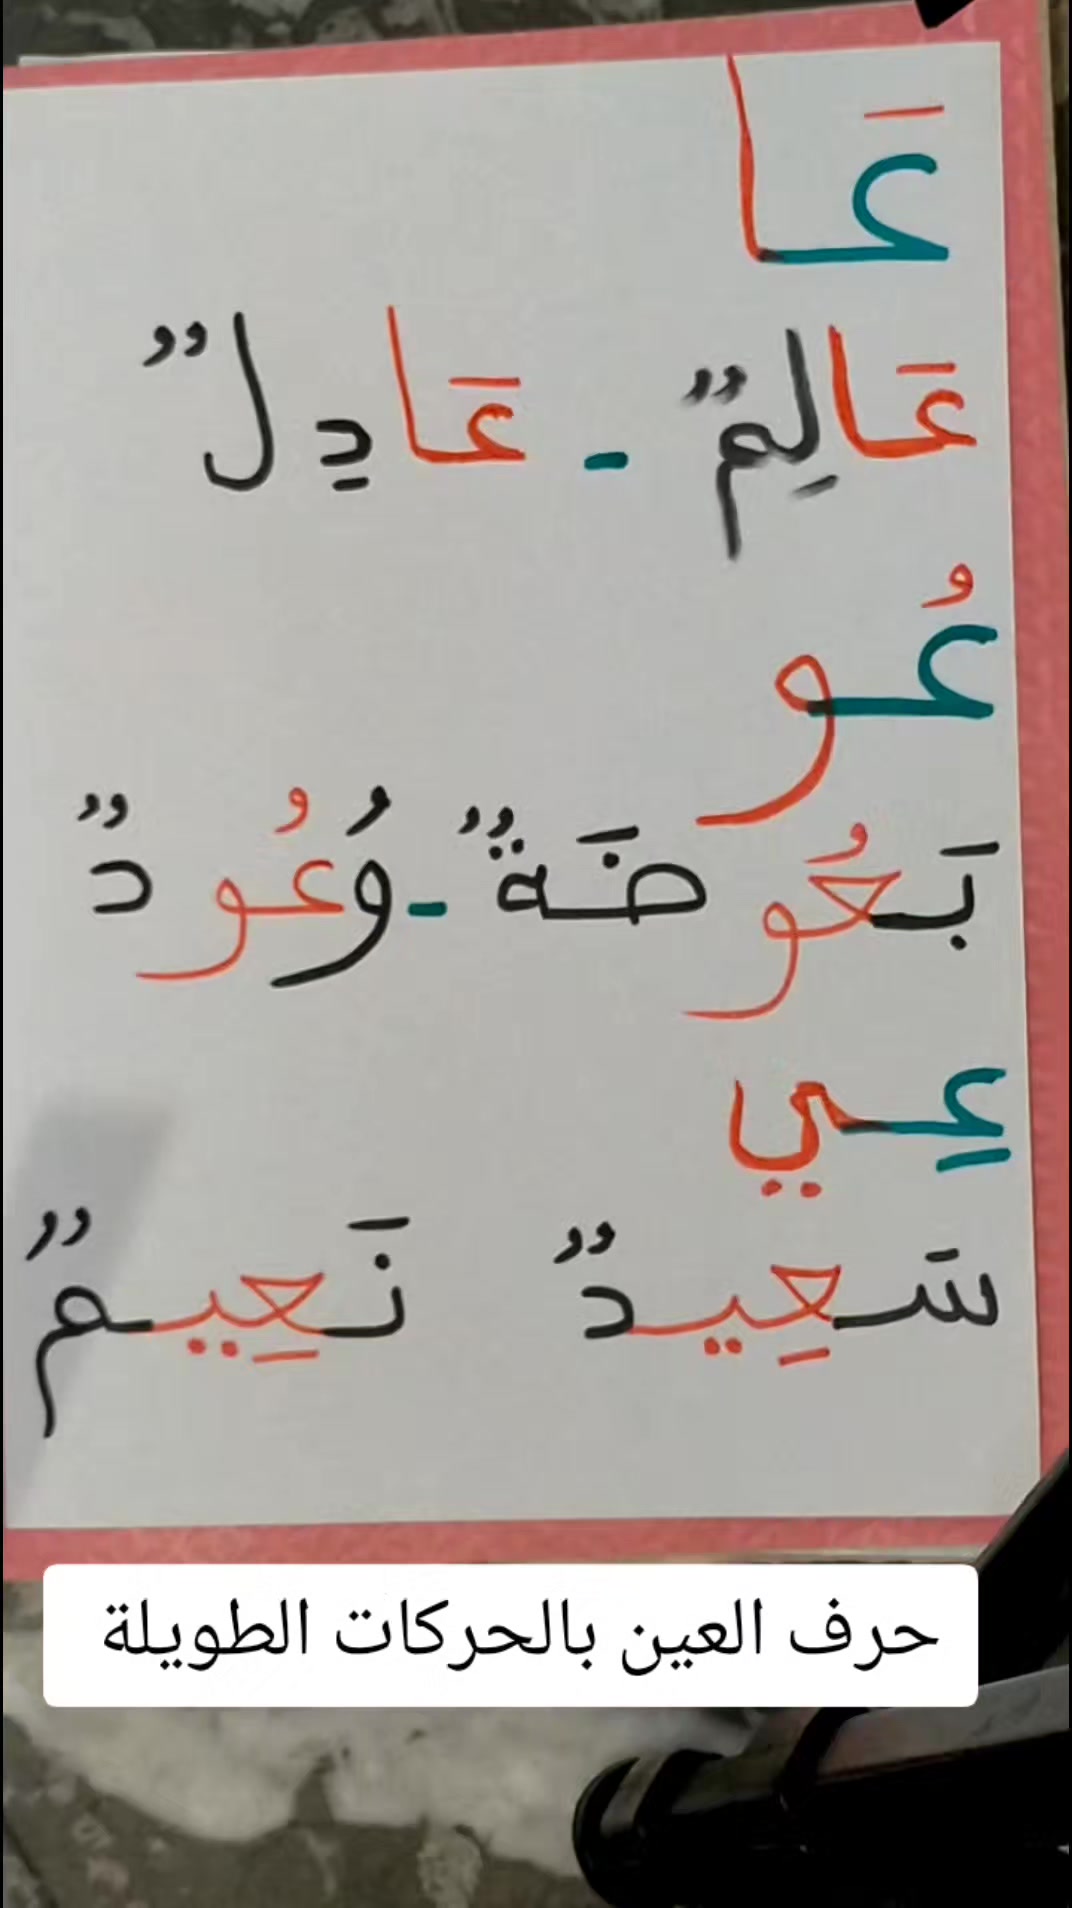 عَا
عَالِمٌ - عَادِلٌ
عُو
بَعُوضَةٌ - وُعُودٌ
عِي
سَعِيدٌ نَعِيمٌ
حرف العين بالحركات الطويلة